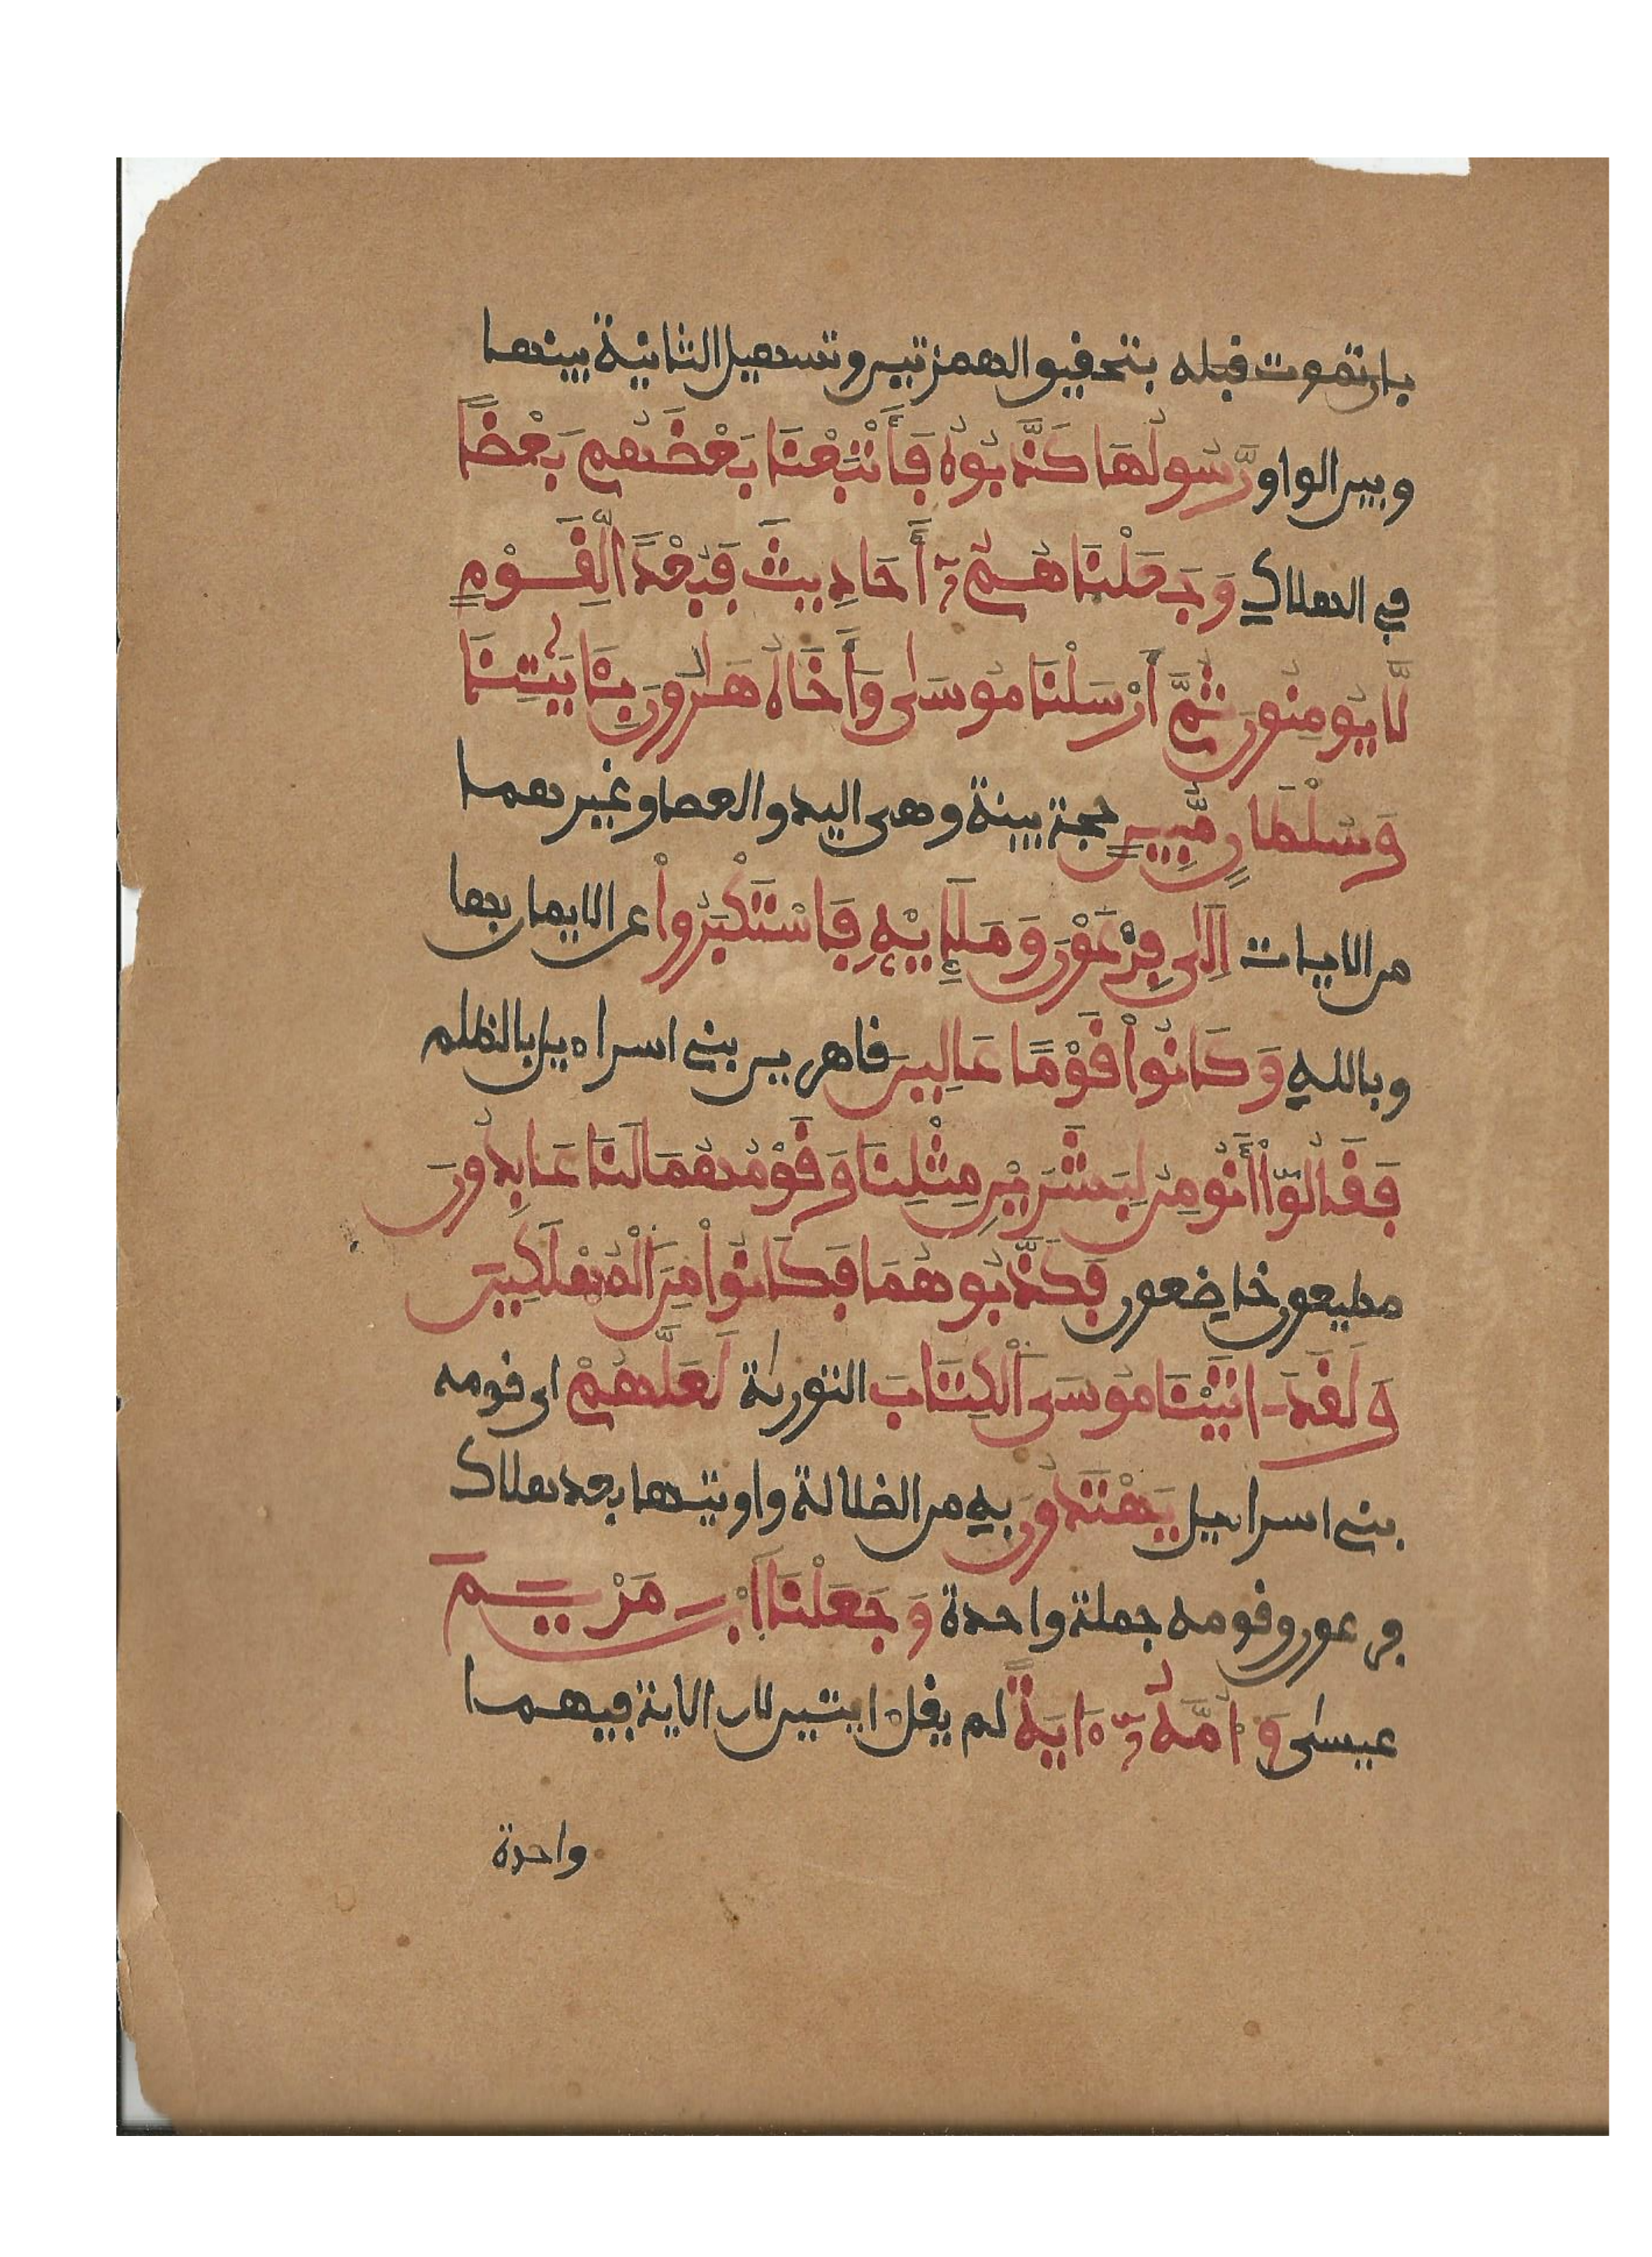 بان تموت قبله بتحقيق الهمزتين وتسهيل الثانية بينها
وبين الواو رَّسُولُهَا كَذَّبُوهُ فَأَتْبَعْنَا بَعْضَهُم بَعْضًا
في الهلاك وَجَعَلْنَاهُمُۥٓ أَحَادِيثَ فَبُعْدًا لِّقَوْمٍ
لَّا يُومِنُونَ ثُمَّ أَرْسَلْنَا مُوسَىٰ وَأَخَاهُ هَـٰرُونَ بِـَٔايَـٰتِنَا
وَسُلْطَانٍ مُّبِينٍ حجة بينة وهى اليد والعصا وغيرهما
من الايات إِلَىٰ فِرْعَوْنَ وَمَلَإِيْهِ فَاسْتَكْبَرُواْ عن الايمان بها
وبالله وَكَانُواْ قَوْمًا عَالِينَ قاهرين بنى اسراءيل بالظلم
فَقَالُوٓاْ أَنُومِنُ لِبَشَرَيْنِ مِثْلِنَا وَقَوْمُهُمَا لَنَا عَابِدُونَ
مطيعون خاضعون فَكَذَّبُوهُمَا فَكَانُواْ مِنَ الْمُهْلَكِينَ
وَلَقَدَ اتَيْنَا مُوسَى الْكِتَابَ التورىٰة لَعَلَّهُمْ اى قومه
بنى اسراءيل يَهْتَدُونَ به من الضلالة واوتيها بعد هلاك
فرعون وقومه جملة واحدة وَجَعَلْنَا ابْنَ مَرْيَمَ
عيسىٰ وَأُمَّهُۥٓ ءَايَةً لم يقل ءايتين لان الاية فيهما
واحدة